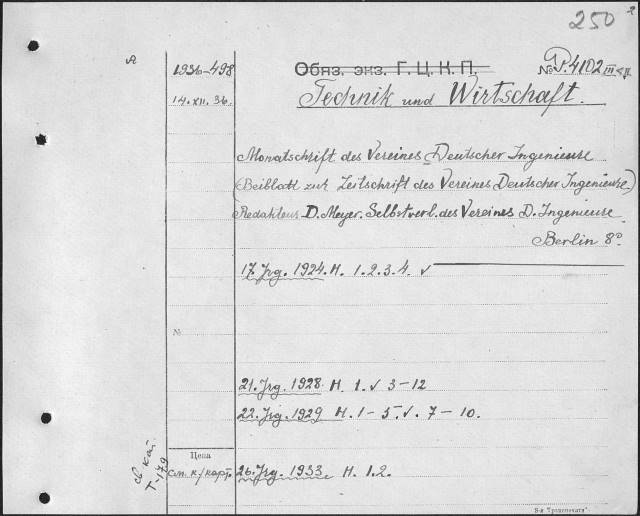 250
1936-498
Обяз. экз. Г. Ц. К. П.
№ P.4102 III
14.XII.36.
Technik und Wirtschaft.
Monatschrift des Vereines Deutscher Ingenieure
(Beiblatt zur Zeitschrift des Vereines Deutscher Ingenieure)
Redakteur D. Meyer. Selbstverl. des Vereines D. Ingenieure
Berlin 8°.
17. Jrg. 1924. H. 1. 2. 3. 4. v
№
21. Jrg. 1928 H. 1. v 3-12
22. Jrg. 1929 H. 1-5. v. 7-10.
Цена
см. к/карт.
26. Jrg. 1933 H. 1. 2.
св кат
Т-179